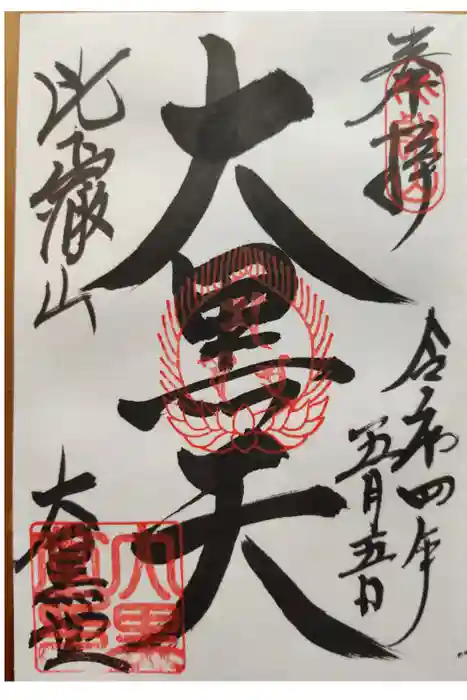 奉拝
令和四年
五月五日
大黒天
比叡山
大黒堂
大黒